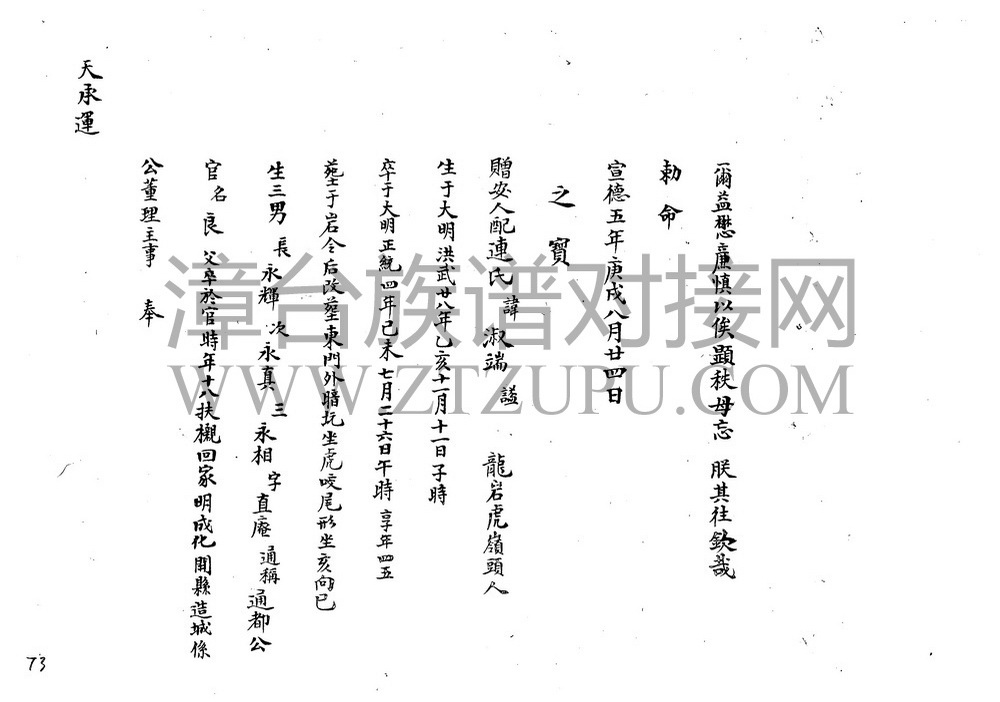 爾益懋廉慎以俟顯秩毋忘 朕其往欽哉
勅命
宣德五年庚戌八月廿四日
之寶
贈安人配連氏 諱 淑端 謚 龍岩虎嶺頭人
生于大明洪武廿八年乙亥十一月十一日子時
卒于大明正統四年己未七月二十六日午時 享年四五
塟于岩仝后改塟東門外暗坑坐虎咬尾形坐亥向巳
生三男 長永輝 次永真 三永相 字直庵 通稱通都公
官名良 父卒於官時年十八扶櫬回家明成化開縣造城係
公董理主事 奉
天承運
73
漳台族谱对接网
WWW.ZTZUPU.COM